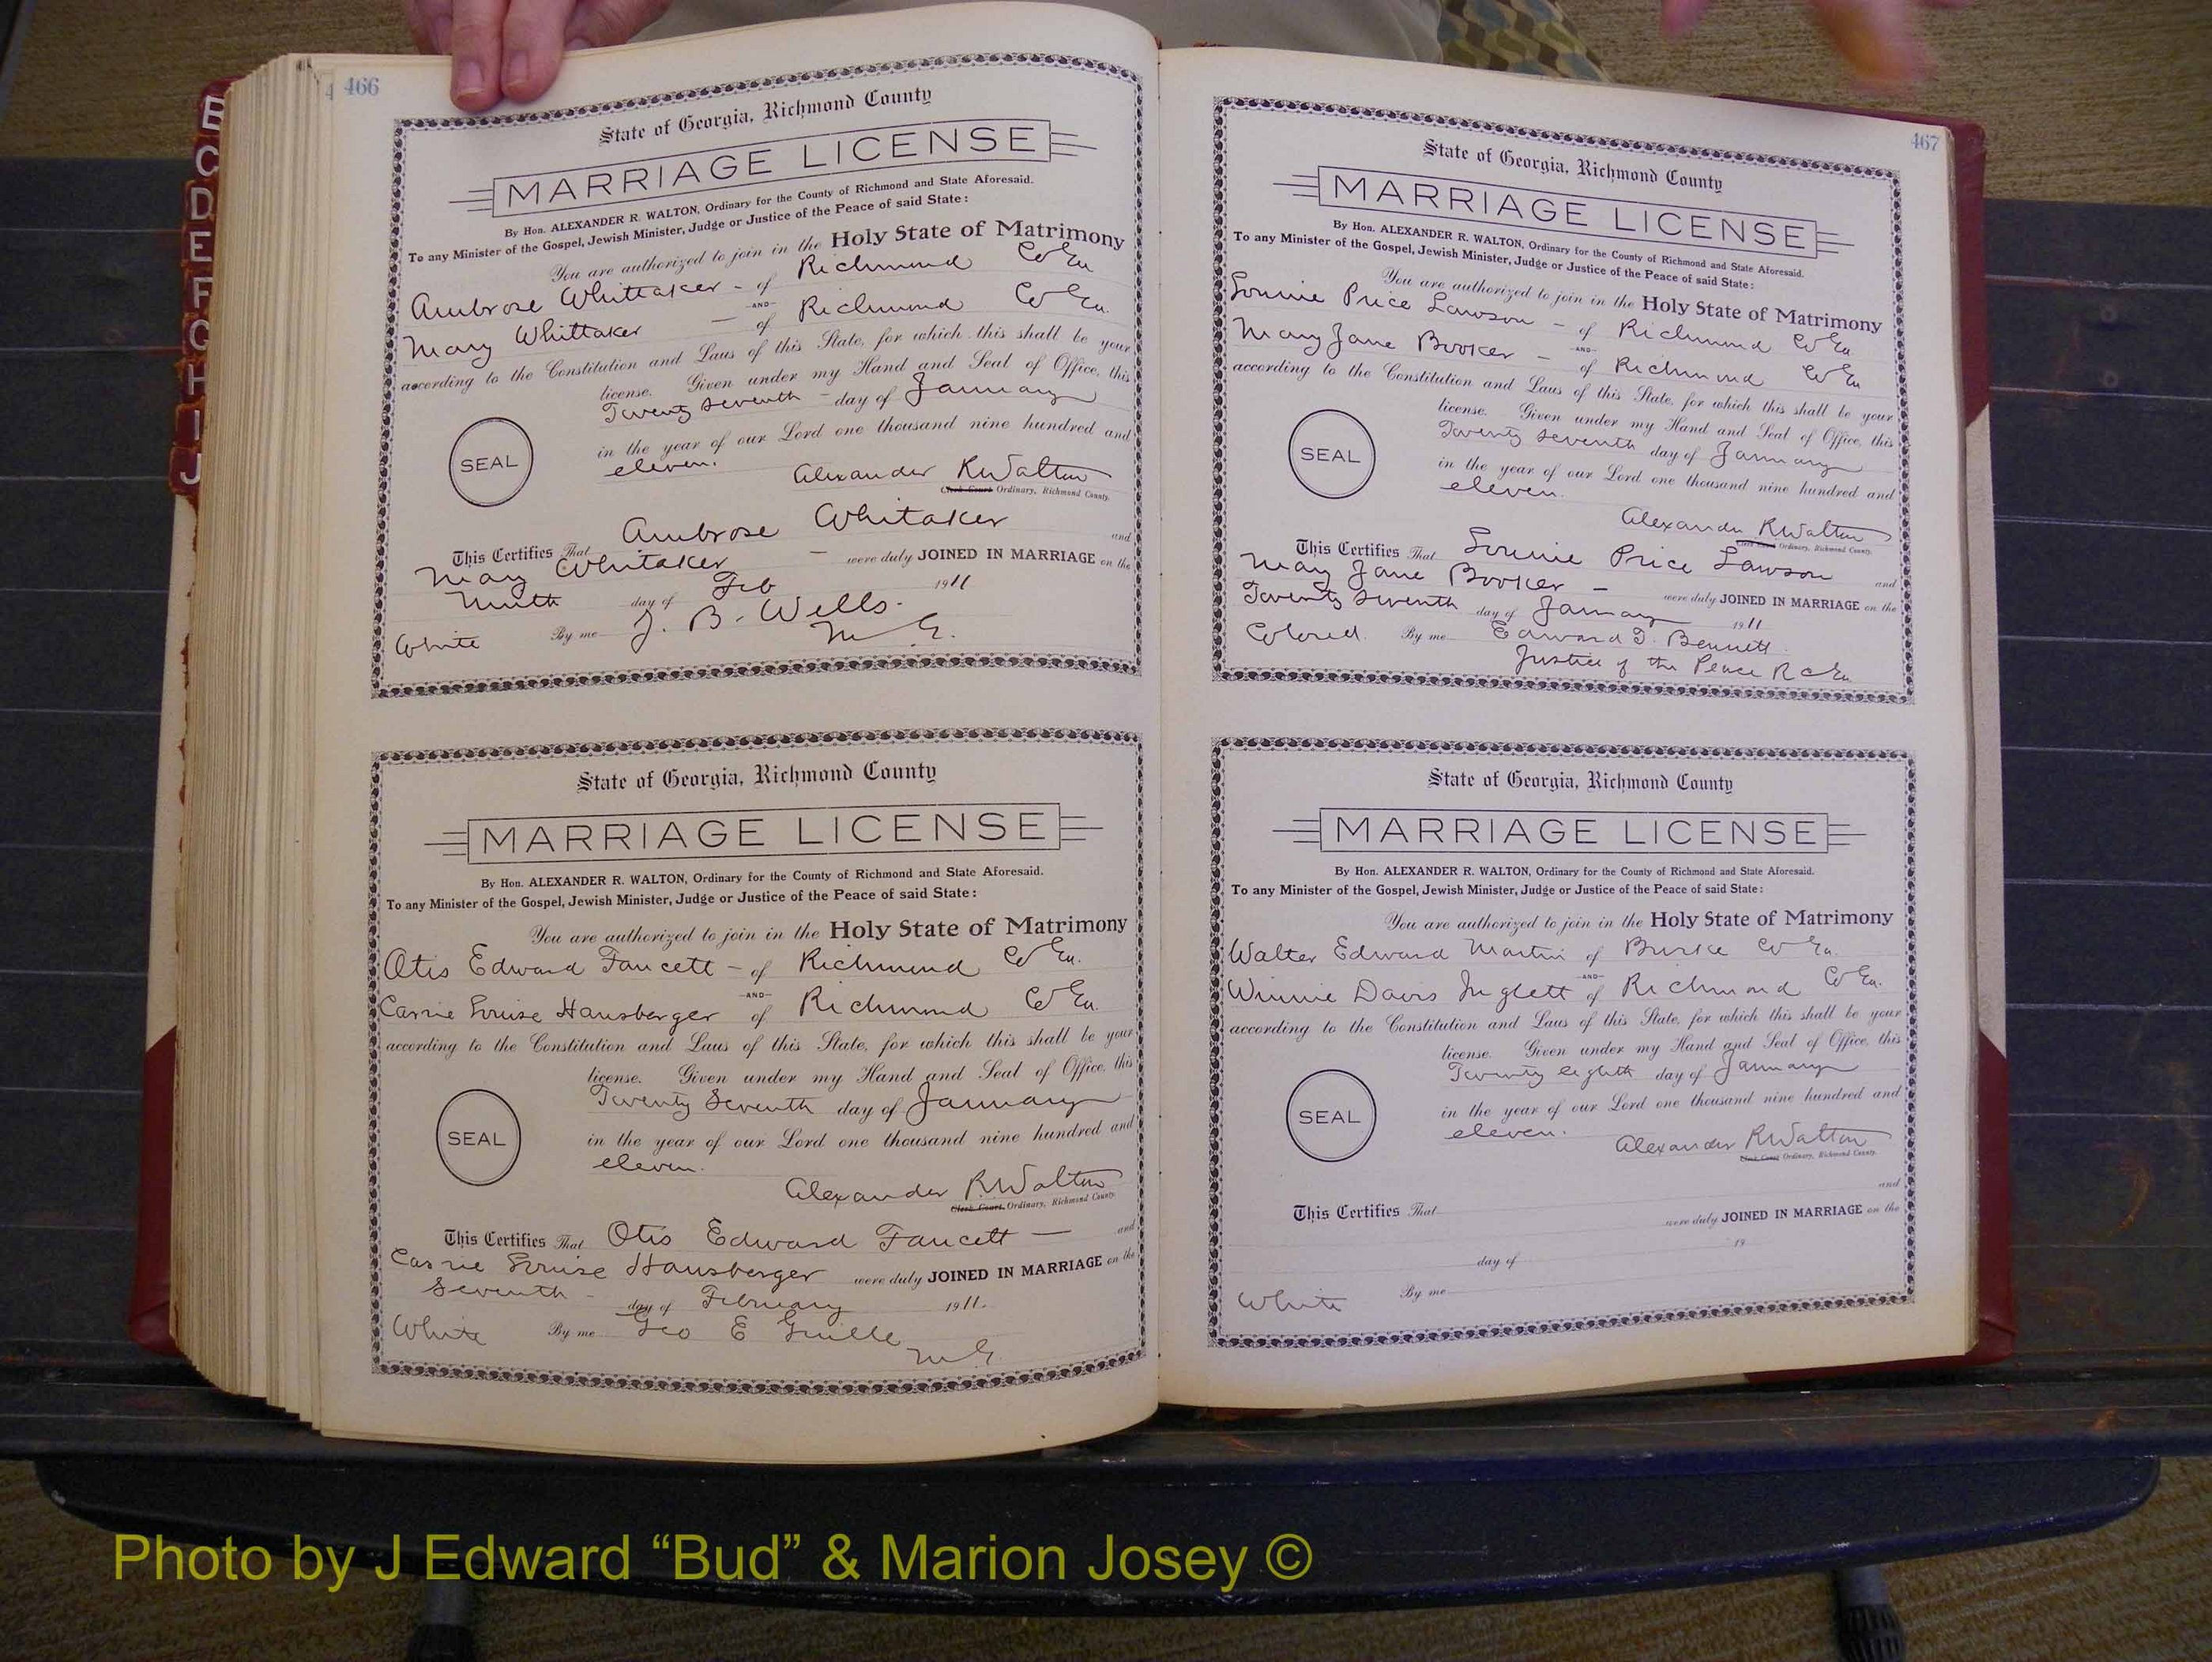 B
C
D
E
F
G
H
I
J
466
State of Georgia, Richmond County
MARRIAGE LICENSE
By Hon. ALEXANDER R. WALTON, Ordinary for the County of Richmond and State Aforesaid.
To any Minister of the Gospel, Jewish Minister, Judge or Justice of the Peace of said State:
You are authorized to join in the Holy State of Matrimony
Ambrose Whittaker - of Richmond Co Ga
-AND-
Mary Whittaker - of Richmond Co Ga.
according to the Constitution and Laws of this State, for which this shall be your
license. Given under my Hand and Seal of Office, this
Twenty seventh - day of January
in the year of our Lord one thousand nine hundred and
SEAL
eleven.
Alexander R Walton
Clerk Court Ordinary, Richmond County.
This Certifies That Ambrose Whitaker and
Mary Whitaker - were duly JOINED IN MARRIAGE on the
Ninth day of Feb 1911
White By me J. B. Wells.
M G.
State of Georgia, Richmond County
MARRIAGE LICENSE
By Hon. ALEXANDER R. WALTON, Ordinary for the County of Richmond and State Aforesaid.
To any Minister of the Gospel, Jewish Minister, Judge or Justice of the Peace of said State:
You are authorized to join in the Holy State of Matrimony
Otis Edward Faucett - of Richmond Co Ga.
-AND-
Carrie Louise Hansberger of Richmond Co Ga.
according to the Constitution and Laws of this State, for which this shall be your
license. Given under my Hand and Seal of Office, this
Twenty Seventh day of January
SEAL
in the year of our Lord one thousand nine hundred and
eleven.
Alexander R. Walton
Clerk Court, Ordinary, Richmond County
This Certifies That Otis Edward Faucett - and
Carrie Louise Hansberger were duly JOINED IN MARRIAGE on the
Seventh - day of February 1911.
White By me Geo E Guille
M G.
467
State of Georgia, Richmond County
MARRIAGE LICENSE
By Hon. ALEXANDER R. WALTON, Ordinary for the County of Richmond and State Aforesaid.
To any Minister of the Gospel, Jewish Minister, Judge or Justice of the Peace of said State:
You are authorized to join in the Holy State of Matrimony
Lonnie Price Lawson - of Richmond Co Ga
-AND-
Mary Jane Booker - of Richmond Co Ga
according to the Constitution and Laws of this State, for which this shall be your
license. Given under my Hand and Seal of Office, this
Twenty seventh day of January
SEAL
in the year of our Lord one thousand nine hundred and
eleven.
Alexander R Walton
Clerk Court Ordinary, Richmond County.
This Certifies That Lonnie Price Lawson and
Mary Jane Booker - were duly JOINED IN MARRIAGE on the
Twenty seventh day of January 1911
Colored. By me Edward T. Bennett
Justice of the Peace R C Ga
State of Georgia, Richmond County
MARRIAGE LICENSE
By Hon. ALEXANDER R. WALTON, Ordinary for the County of Richmond and State Aforesaid.
To any Minister of the Gospel, Jewish Minister, Judge or Justice of the Peace of said State:
You are authorized to join in the Holy State of Matrimony
Walter Edward Martin of Burke Co Ga.
-AND-
Winnie Davis Inglett of Richmond Co Ga.
according to the Constitution and Laws of this State, for which this shall be your
license. Given under my Hand and Seal of Office, this
Twenty eighth day of January
SEAL
in the year of our Lord one thousand nine hundred and
eleven.
Alexander R Walton
Clerk Court Ordinary, Richmond County.
and
This Certifies That were duly JOINED IN MARRIAGE on the
day of 19
White By me
Photo by J Edward “Bud” & Marion Josey ©